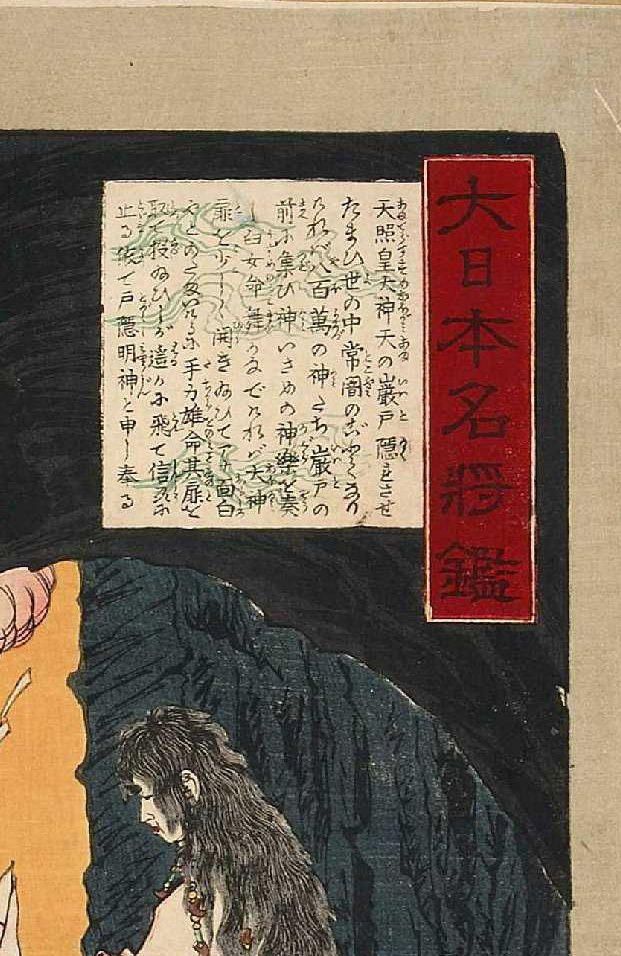 大日本名将鑑
天照皇大神天の巌戸隠ませ
たまひ世の中常闇の
れバ八百萬の神たち巌戸の
前に集ひ神いさめの神楽を奏
し臼女命舞かなでけれバ大神
扉を少しく開きゐひてア面白
やとのたまふ 手力雄命其扉を
取て投ゐひしが遥かに飛て信
止る依て戸隠明神と申し奉る